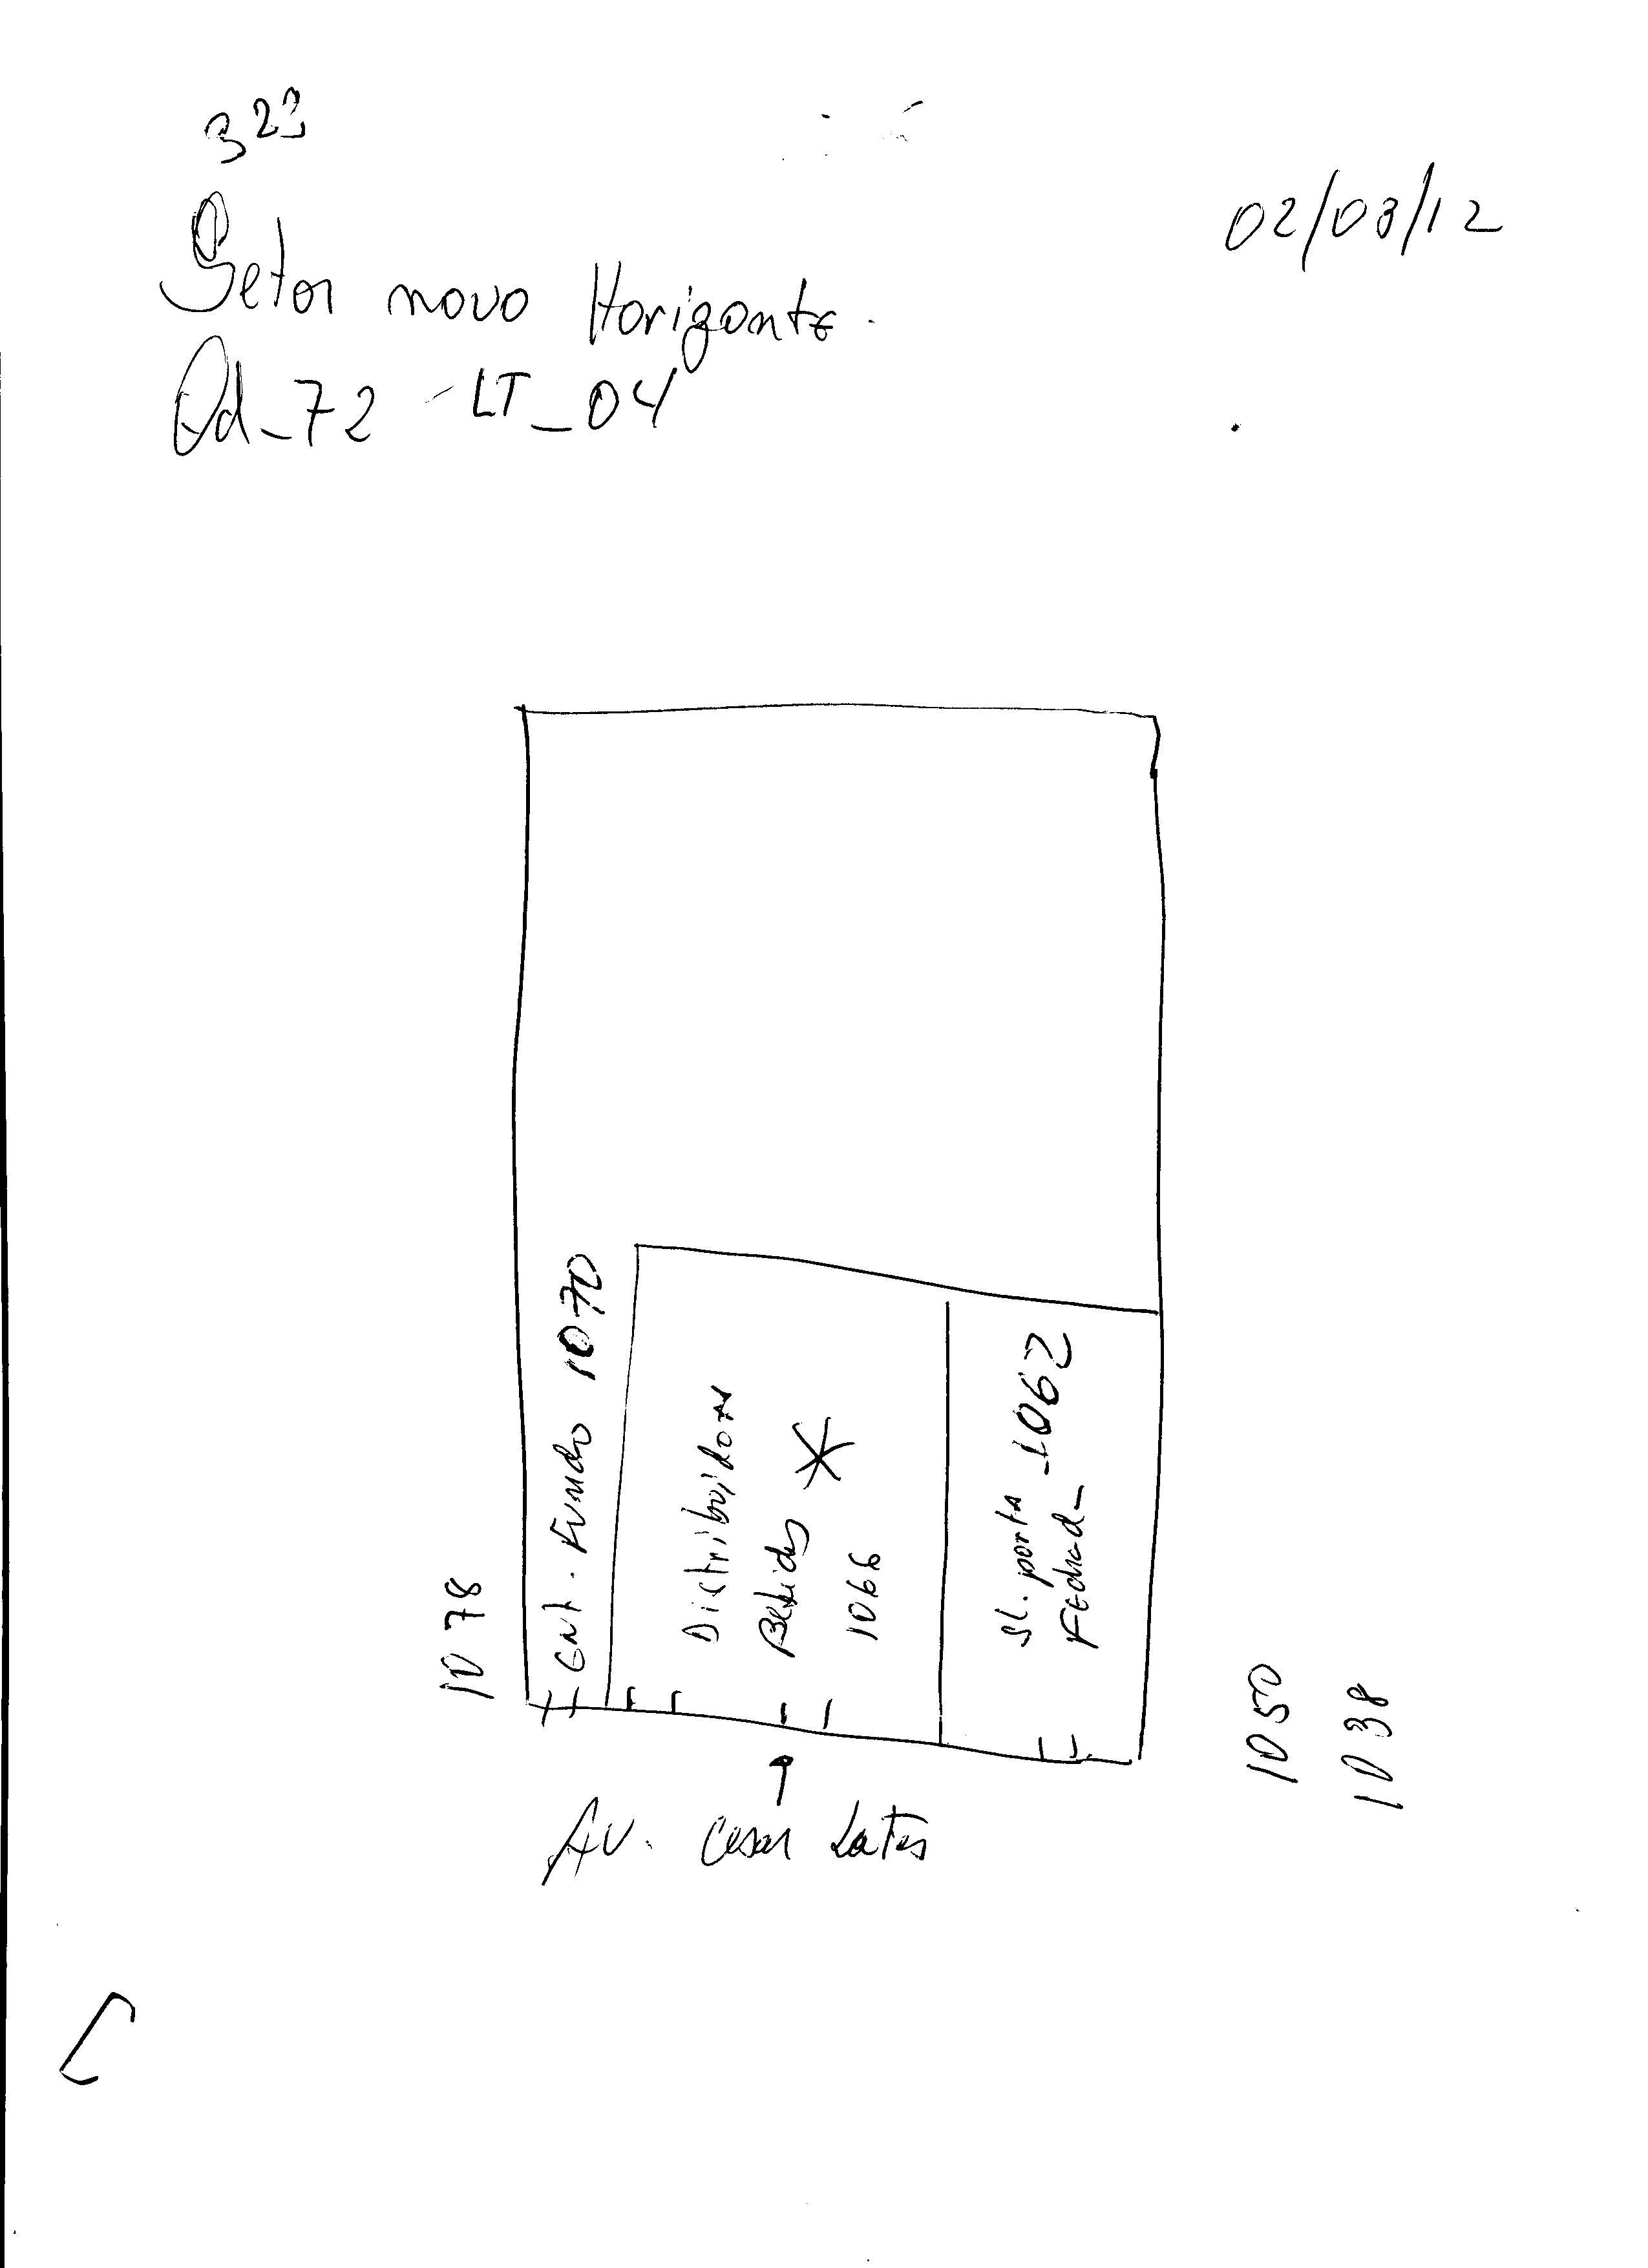 323
02/03/12
Setor novo Horizonte.
Qd_72 - LT_04
1078
Ent. Fundo 1070
Distribuidora
Bebidas
1066
SL. porta - 1062
Fechada
1050
1038
Av. Cesar Lates